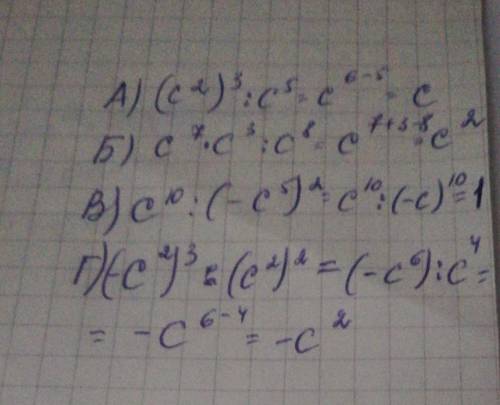 А) (c²)³ : c⁵ = c⁶⁻⁵ = c
Б) c⁷ · c³ : c⁸ = c⁷⁺³⁻⁸ = c²
В) c¹⁰ : (-c⁵)² = c¹⁰ : (-c)¹⁰ = 1
Г) (-c²)³ : (c²)² = (-c⁶) : c⁴ =
= -c⁶⁻⁴ = -c²